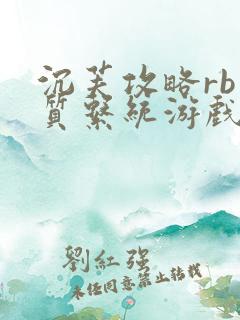 沉芙攻略rb
质系统游戏
刘红强
未经同意禁止转载